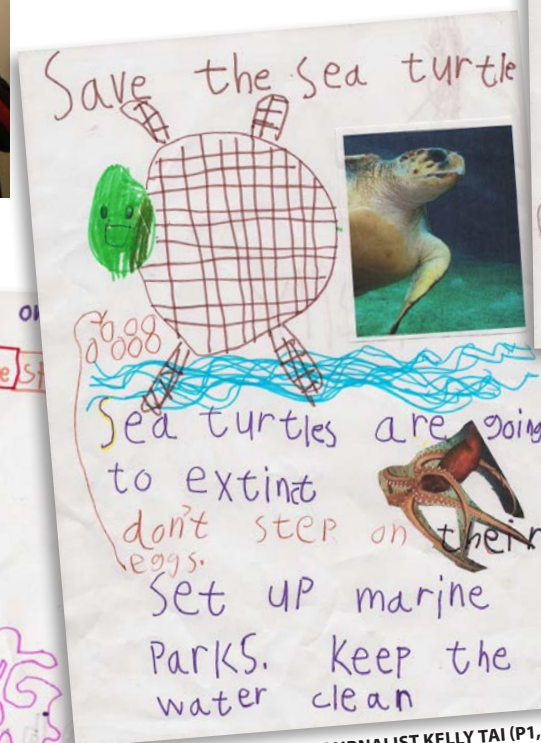 Save the sea turtle
Sea turtles are going
to extinct
don't step on their
eggs.
Set up marine
Parks. Keep the
water clean
JOURNALIST KELLY TAI (P1,